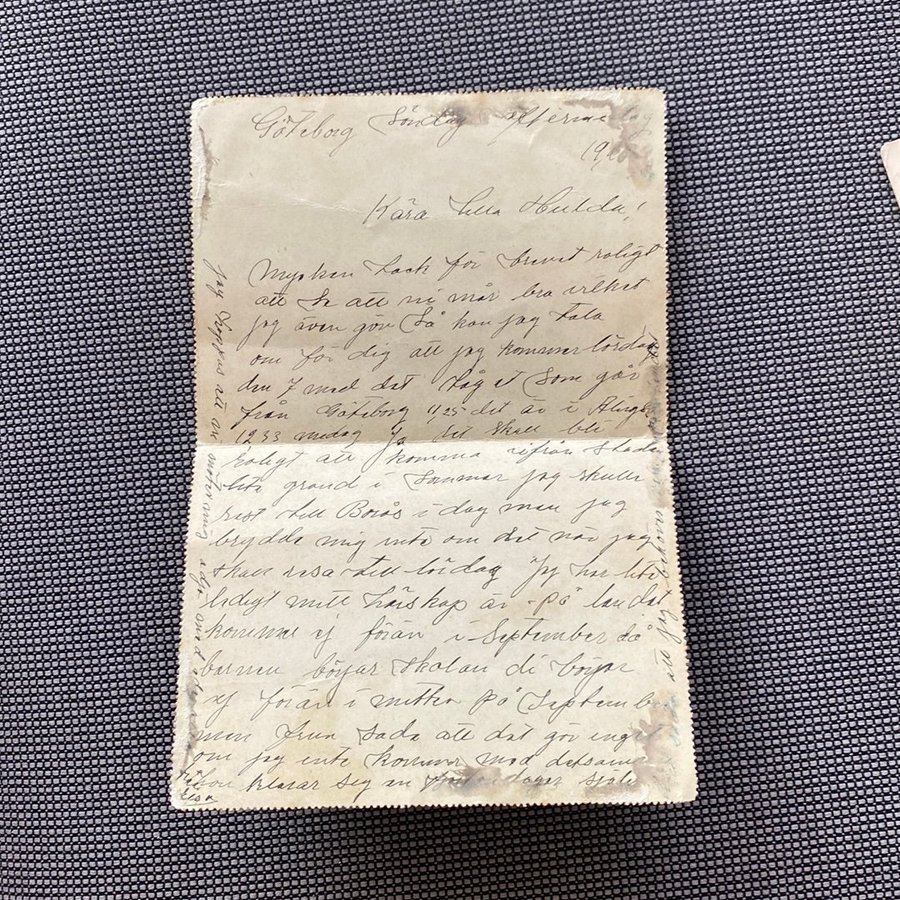 Göteborg Söndag eftermedag
19
Kära lilla Hulda!
Mycken tack för brevet roligt
att Se att ni mår bra vilket
jag även gör Så kan jag tala
om för dig att jag kommer lördag
den 7 med det tåget Som går
från Göteborg 1125 det är i Alings
1233 middag Ja det Skall bli
roligt att komma ifrån Staden
lite grand i Sommar jag skulle
rest till Borås i dag men jag
brydde mig inte om det när jag
Skall resa till lördag Jag har lite
ledigt mitt härskap är på landet
kommer ej förän i September då
barnen börjar Skolan di börjar
ej förän i mitten på September
men frun Sade att det gör inget
om jag inte kommer med detsamma
hon klarar sig en dagar själv
jag hoppas att du möter mig
att jag
Elsa